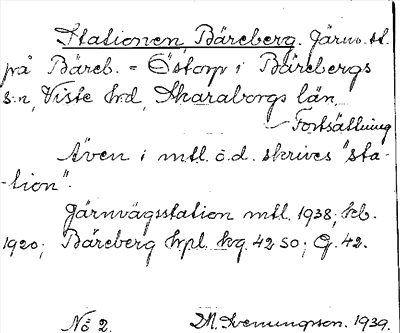 Stationen, Bäreberg. Järnv. st.
på Bäreb. = Östorp i Bärebergs
s:n, Viste hd, Skaraborgs län.
Fortsättning
Även i mtl. o.d. skrives "sta-
tion".
Järnvägsstation mtl. 1938; kb.
1920; Bäreberg hpl. kg. 42 SO; G. 42.
No 2. M. Svenungson. 1939.